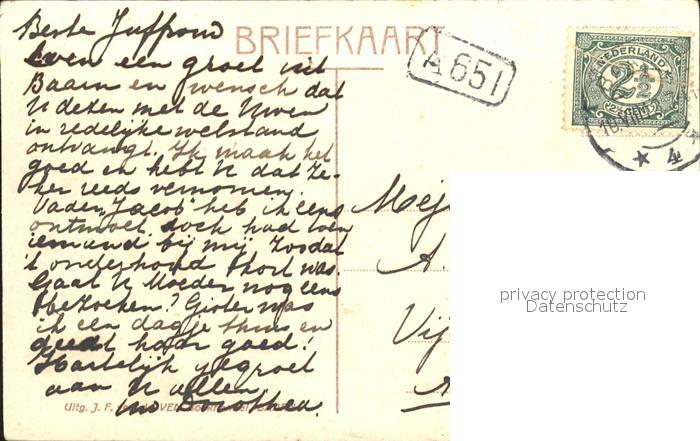 Beste Juffrouw
BRIEFKAART
A 651
NEDERLAND
2½
even een groet uit
Baarn en wensch dat
U dezen met de Uwen
in redelijke welstand
ontvangt. Ik maak het
goed en hebt U dat ze-
ker reeds vernomen.
Vader "Jacob" heb ik eens
ontmoet, doch had toen
iemand bij mij zoodat
't onderhoud kort was.
Gaat U Moeder nog eens
bezoeken? Gister was
ik een dagje thuis en
deed haar goed!
Hartelijk gegroet
aan U allen
Dorothea.
Mej
A.
Vij
4
Uitg. J. F.
privacy protection
Datenschutz